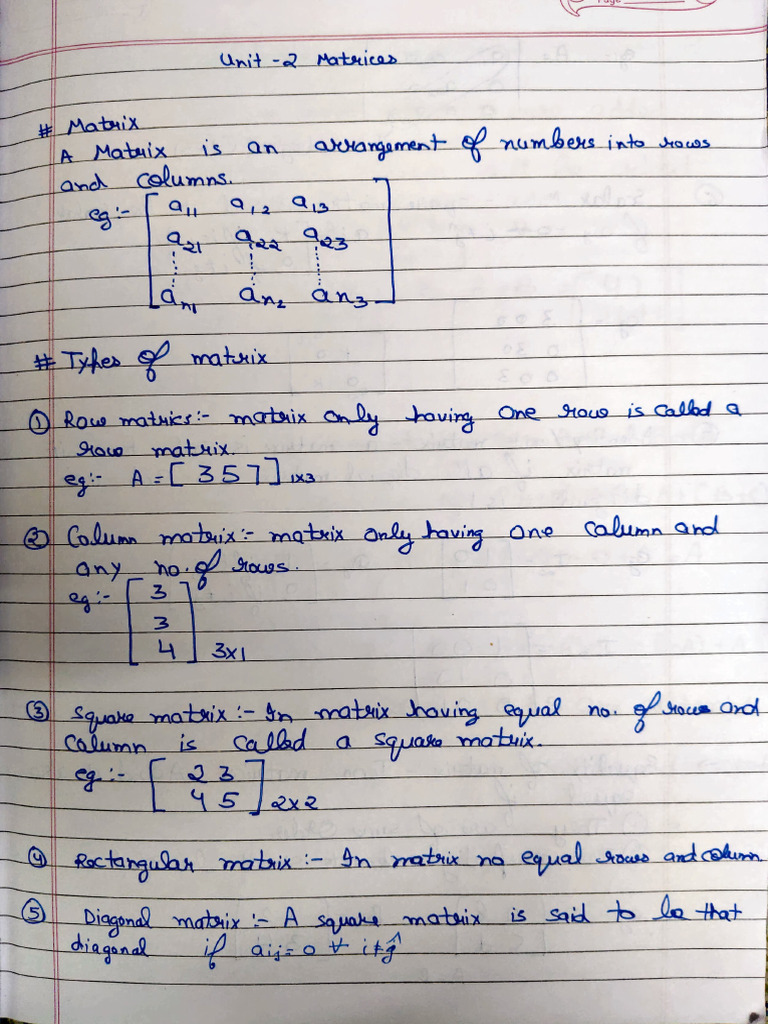 Page
Unit - 2 Matrices
# Matrix
A Matrix is an arrangement of numbers into rows
and columns.
eg:- [ a11 a12 a13
a21 a22 a23
⋮ ⋮ ⋮
an1 an2 an3 ]
# Types of matrix
① Row matrics:- matrix only having one row is called a
row matrix.
eg:- A = [ 3 5 7 ] 1x3
② Column matrix:- matrix only having one column and
any no. of rows.
eg:- [ 3
3
4 ] 3x1
③ Square matrix:- In matrix having equal no. of rows and
column is called a square matrix.
eg:- [ 2 3
4 5 ] 2x2
④ Rectangular matrix:- In matrix no equal rows and column
⑤ Diagonal matrix:- A square matrix is said to be that
diagonal if aij = 0 ∀ i≠j